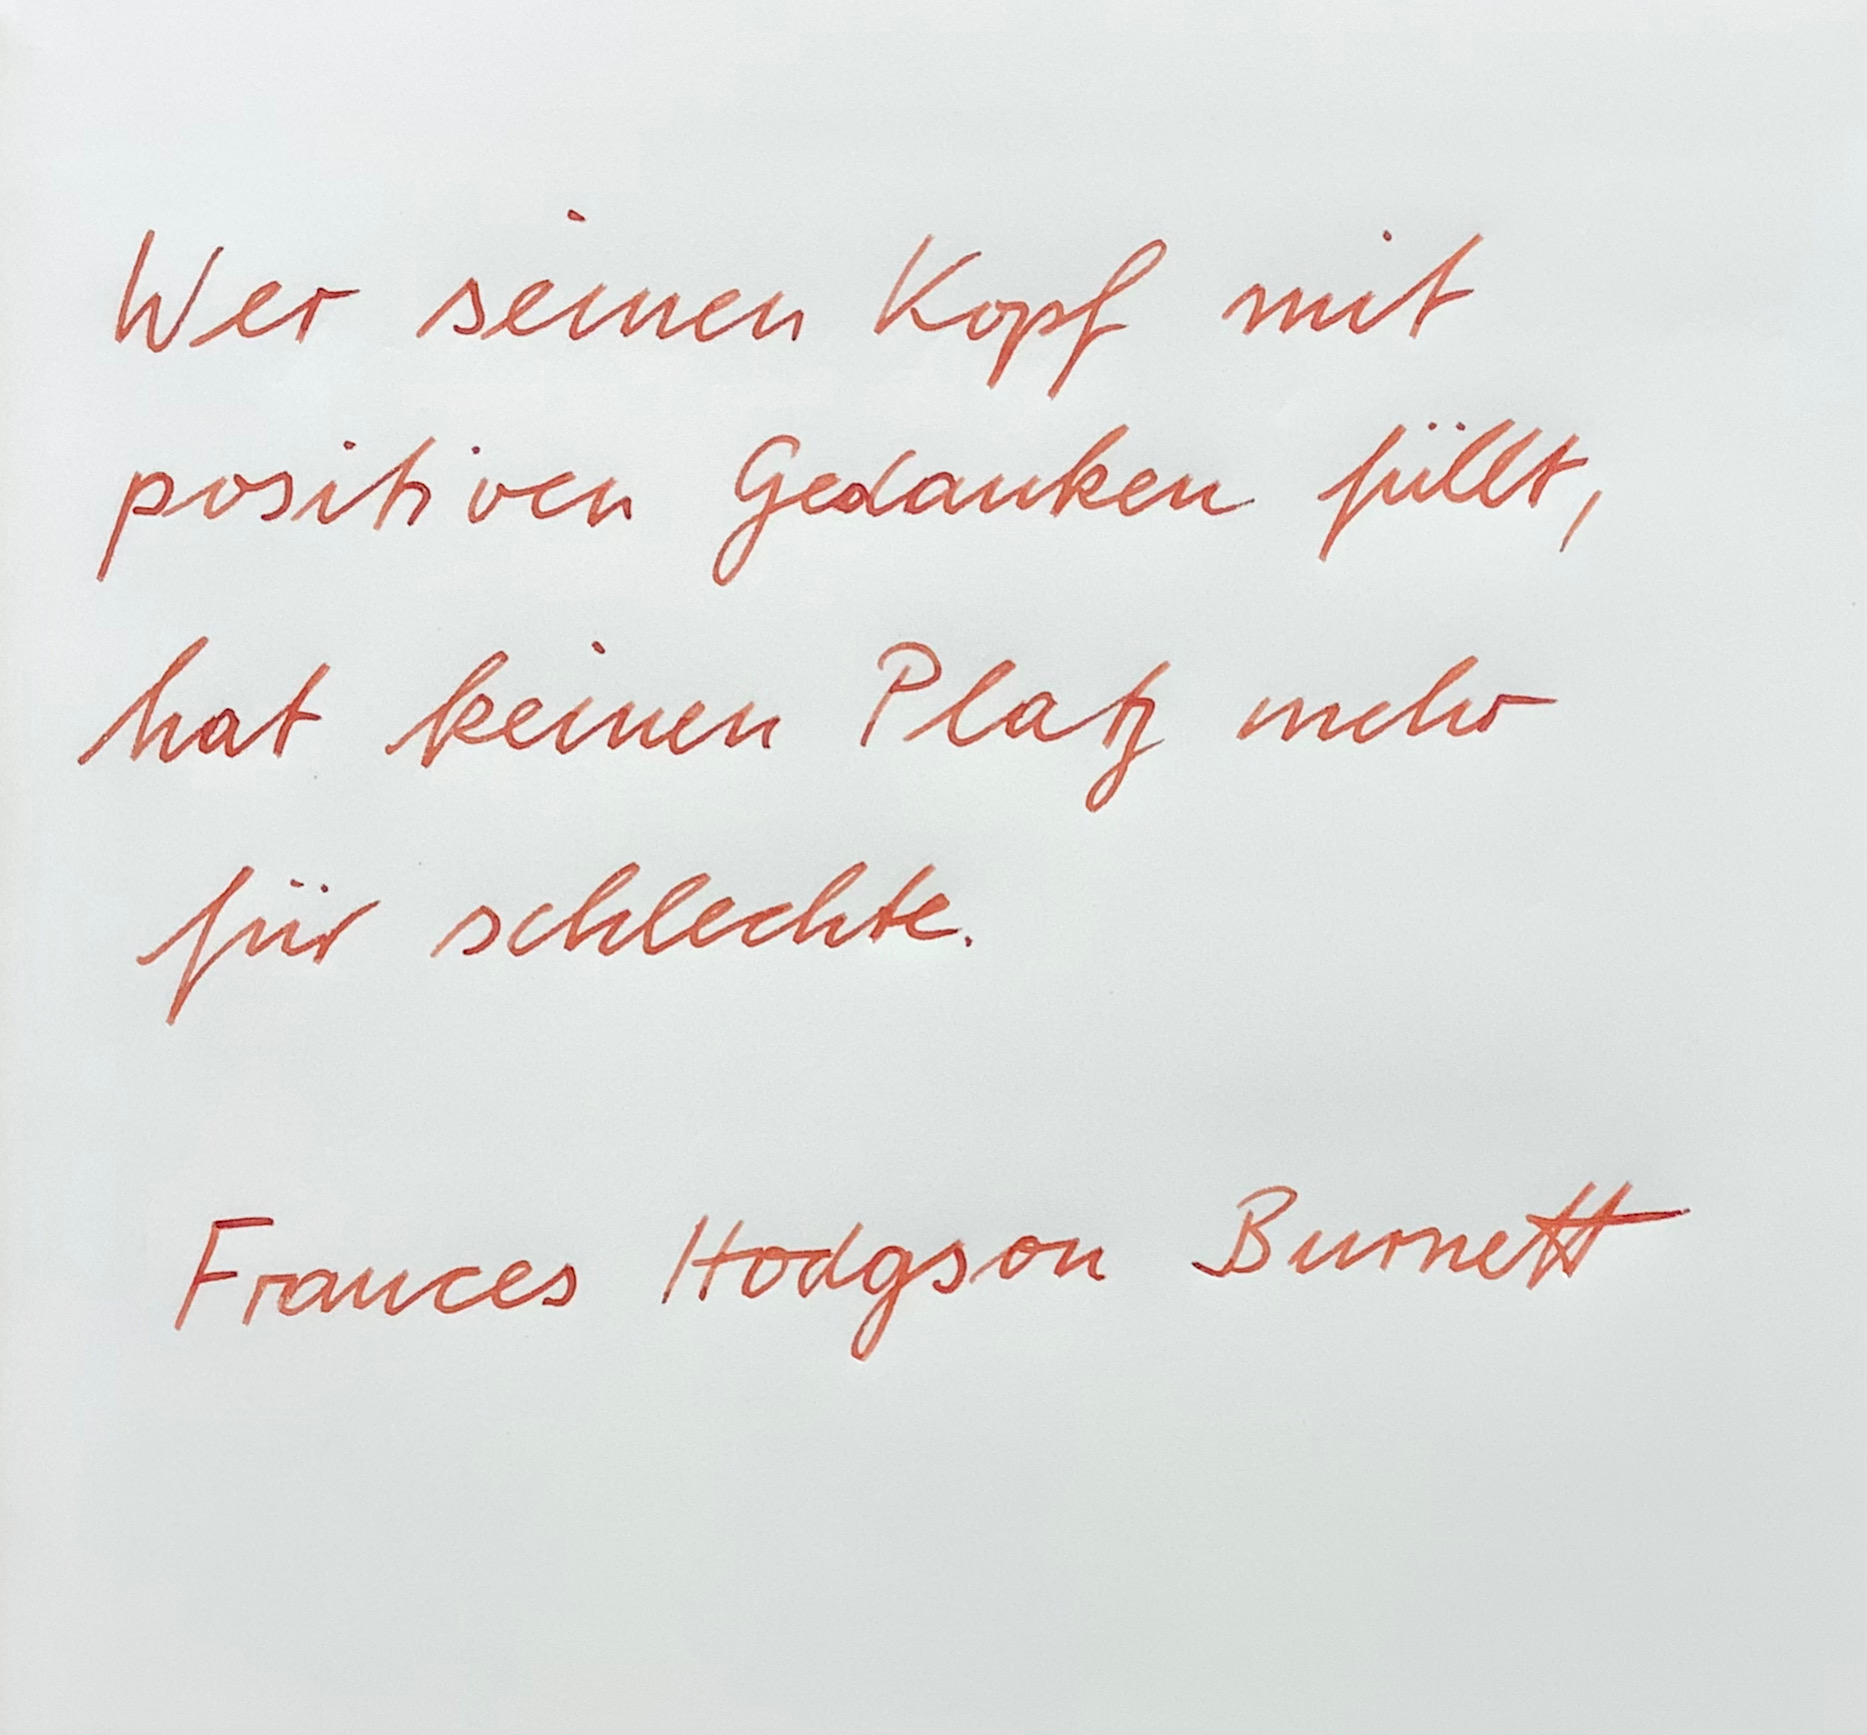 Wer seinen Kopf mit
positiven Gedanken füllt,
hat keinen Platz mehr
für schlechte.
Frances Hodgson Burnett